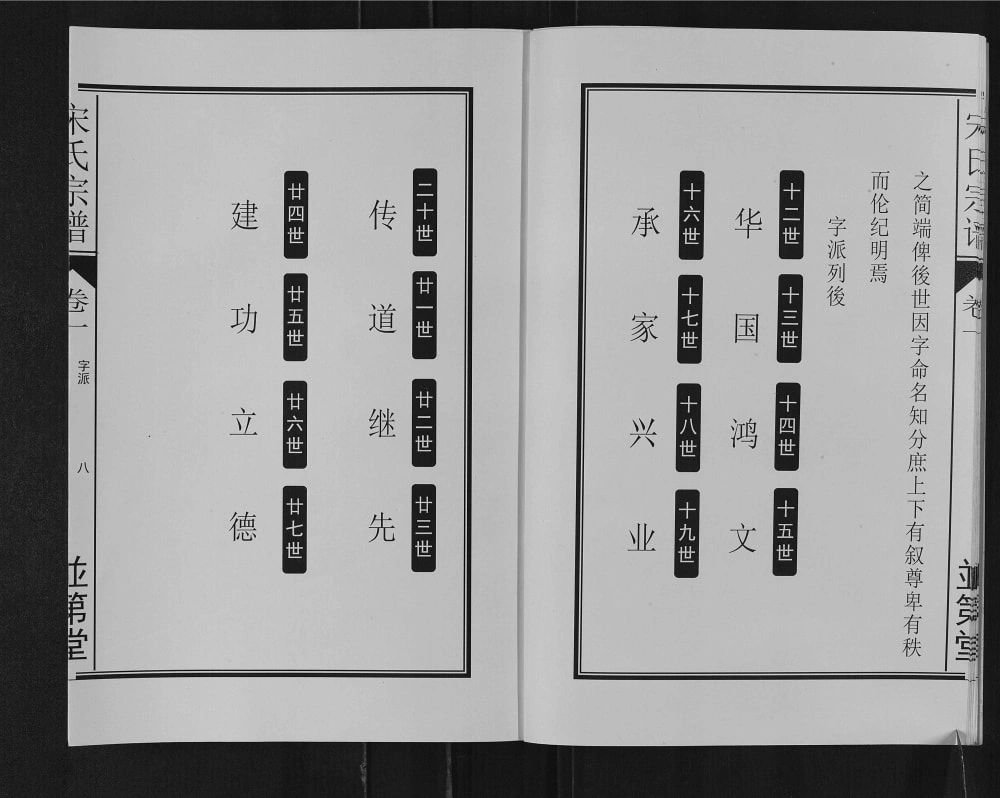 宋氏宗谱
卷一
並第堂
之简端俾後世因字命名知分庶上下有叙尊卑有秩
而伦纪明焉
字派列後
十二世 十三世 十四世 十五世
华 国 鸿 文
十六世 十七世 十八世 十九世
承 家 兴 业
二十世 廿一世 廿二世 廿三世
传 道 继 先
廿四世 廿五世 廿六世 廿七世
建 功 立 德
宋氏宗谱
卷一
字派
八
並第堂